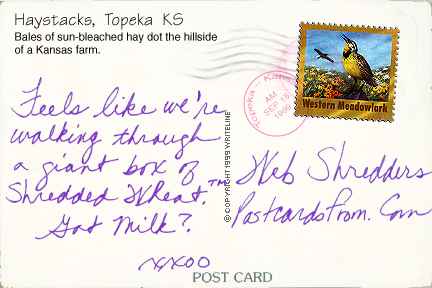 Haystacks, Topeka KS
Bales of sun-bleached hay dot the hillside
of a Kansas farm.
Feels like we're
walking through
a giant box of
Shredded Wheat.™
Got Milk?
xxoo
© COPYRIGHT 1999 WRITELINE
Topeka - Kansas
AM
SEP
1999
Western Meadowlark
Web Shredders
PostcardsFrom.Com
POST CARD